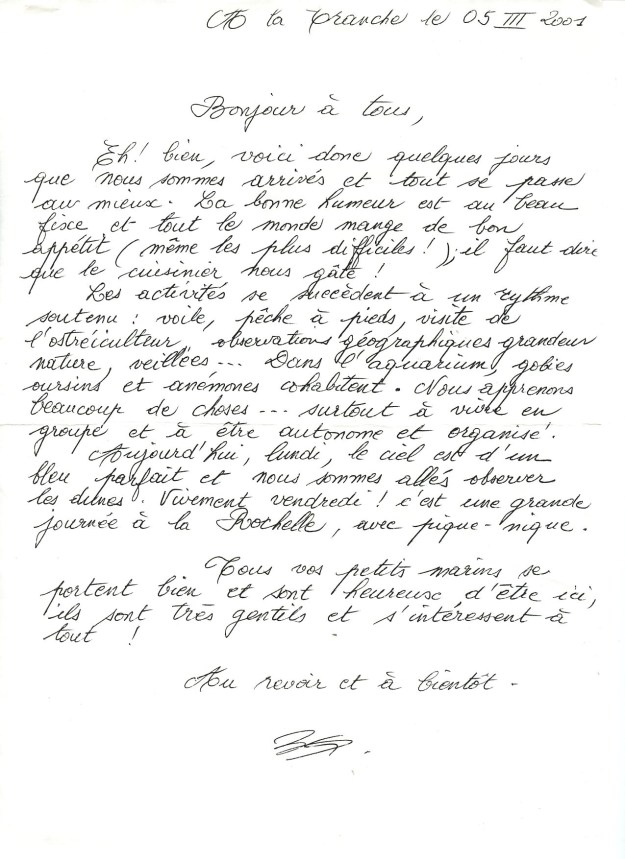 A la Tranche le 05 III 2001
Bonjour à tous,
Eh! bien, voici donc quelques jours
que nous sommes arrivés et tout se passe
au mieux. La bonne humeur est au beau
fixe et tout le monde mange de bon
appétit (même les plus difficiles!); il faut dire
que le cuisinier nous gâte !
Les activités se succèdent à un rythme
soutenu : voile, pêche à pieds, visite de
l'ostréiculteur, observations géographiques grandeur
nature, veillées... Dans l'aquarium, gobies
oursins et anémones cohabitent. Nous apprenons
beaucoup de choses... surtout à vivre en
groupe et à être autonome et organisé.
Aujourd'hui, lundi, le ciel est d'un
bleu parfait et nous sommes allés observer
les dunes. Vivement vendredi ! c'est une grande
journée à la Rochelle, avec pique-nique.
Tous vos petits marins se
portent bien et sont heureux d'être ici,
ils sont très gentils et s'intéressent à
tout !
Au revoir et à bientôt -